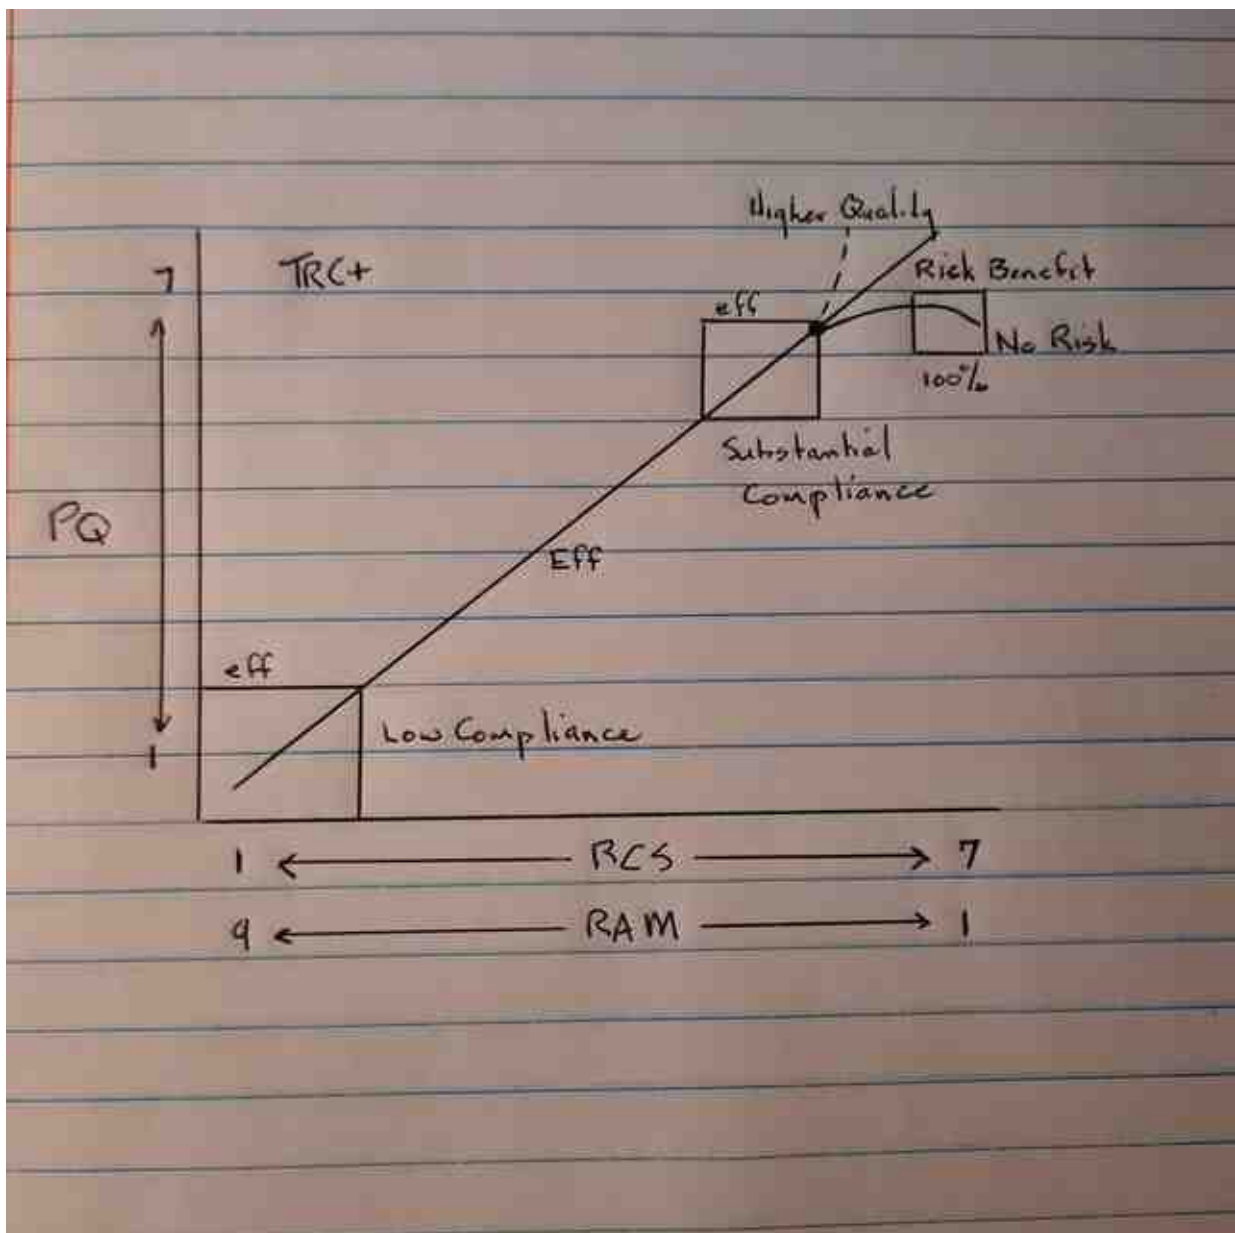 Higher Quality
7
TRC+
Risk Benefit
eff
No Risk
100%
Substantial
Compliance
PQ
Eff
eff
Low Compliance
1
1 RCS 7
9 RAM 1